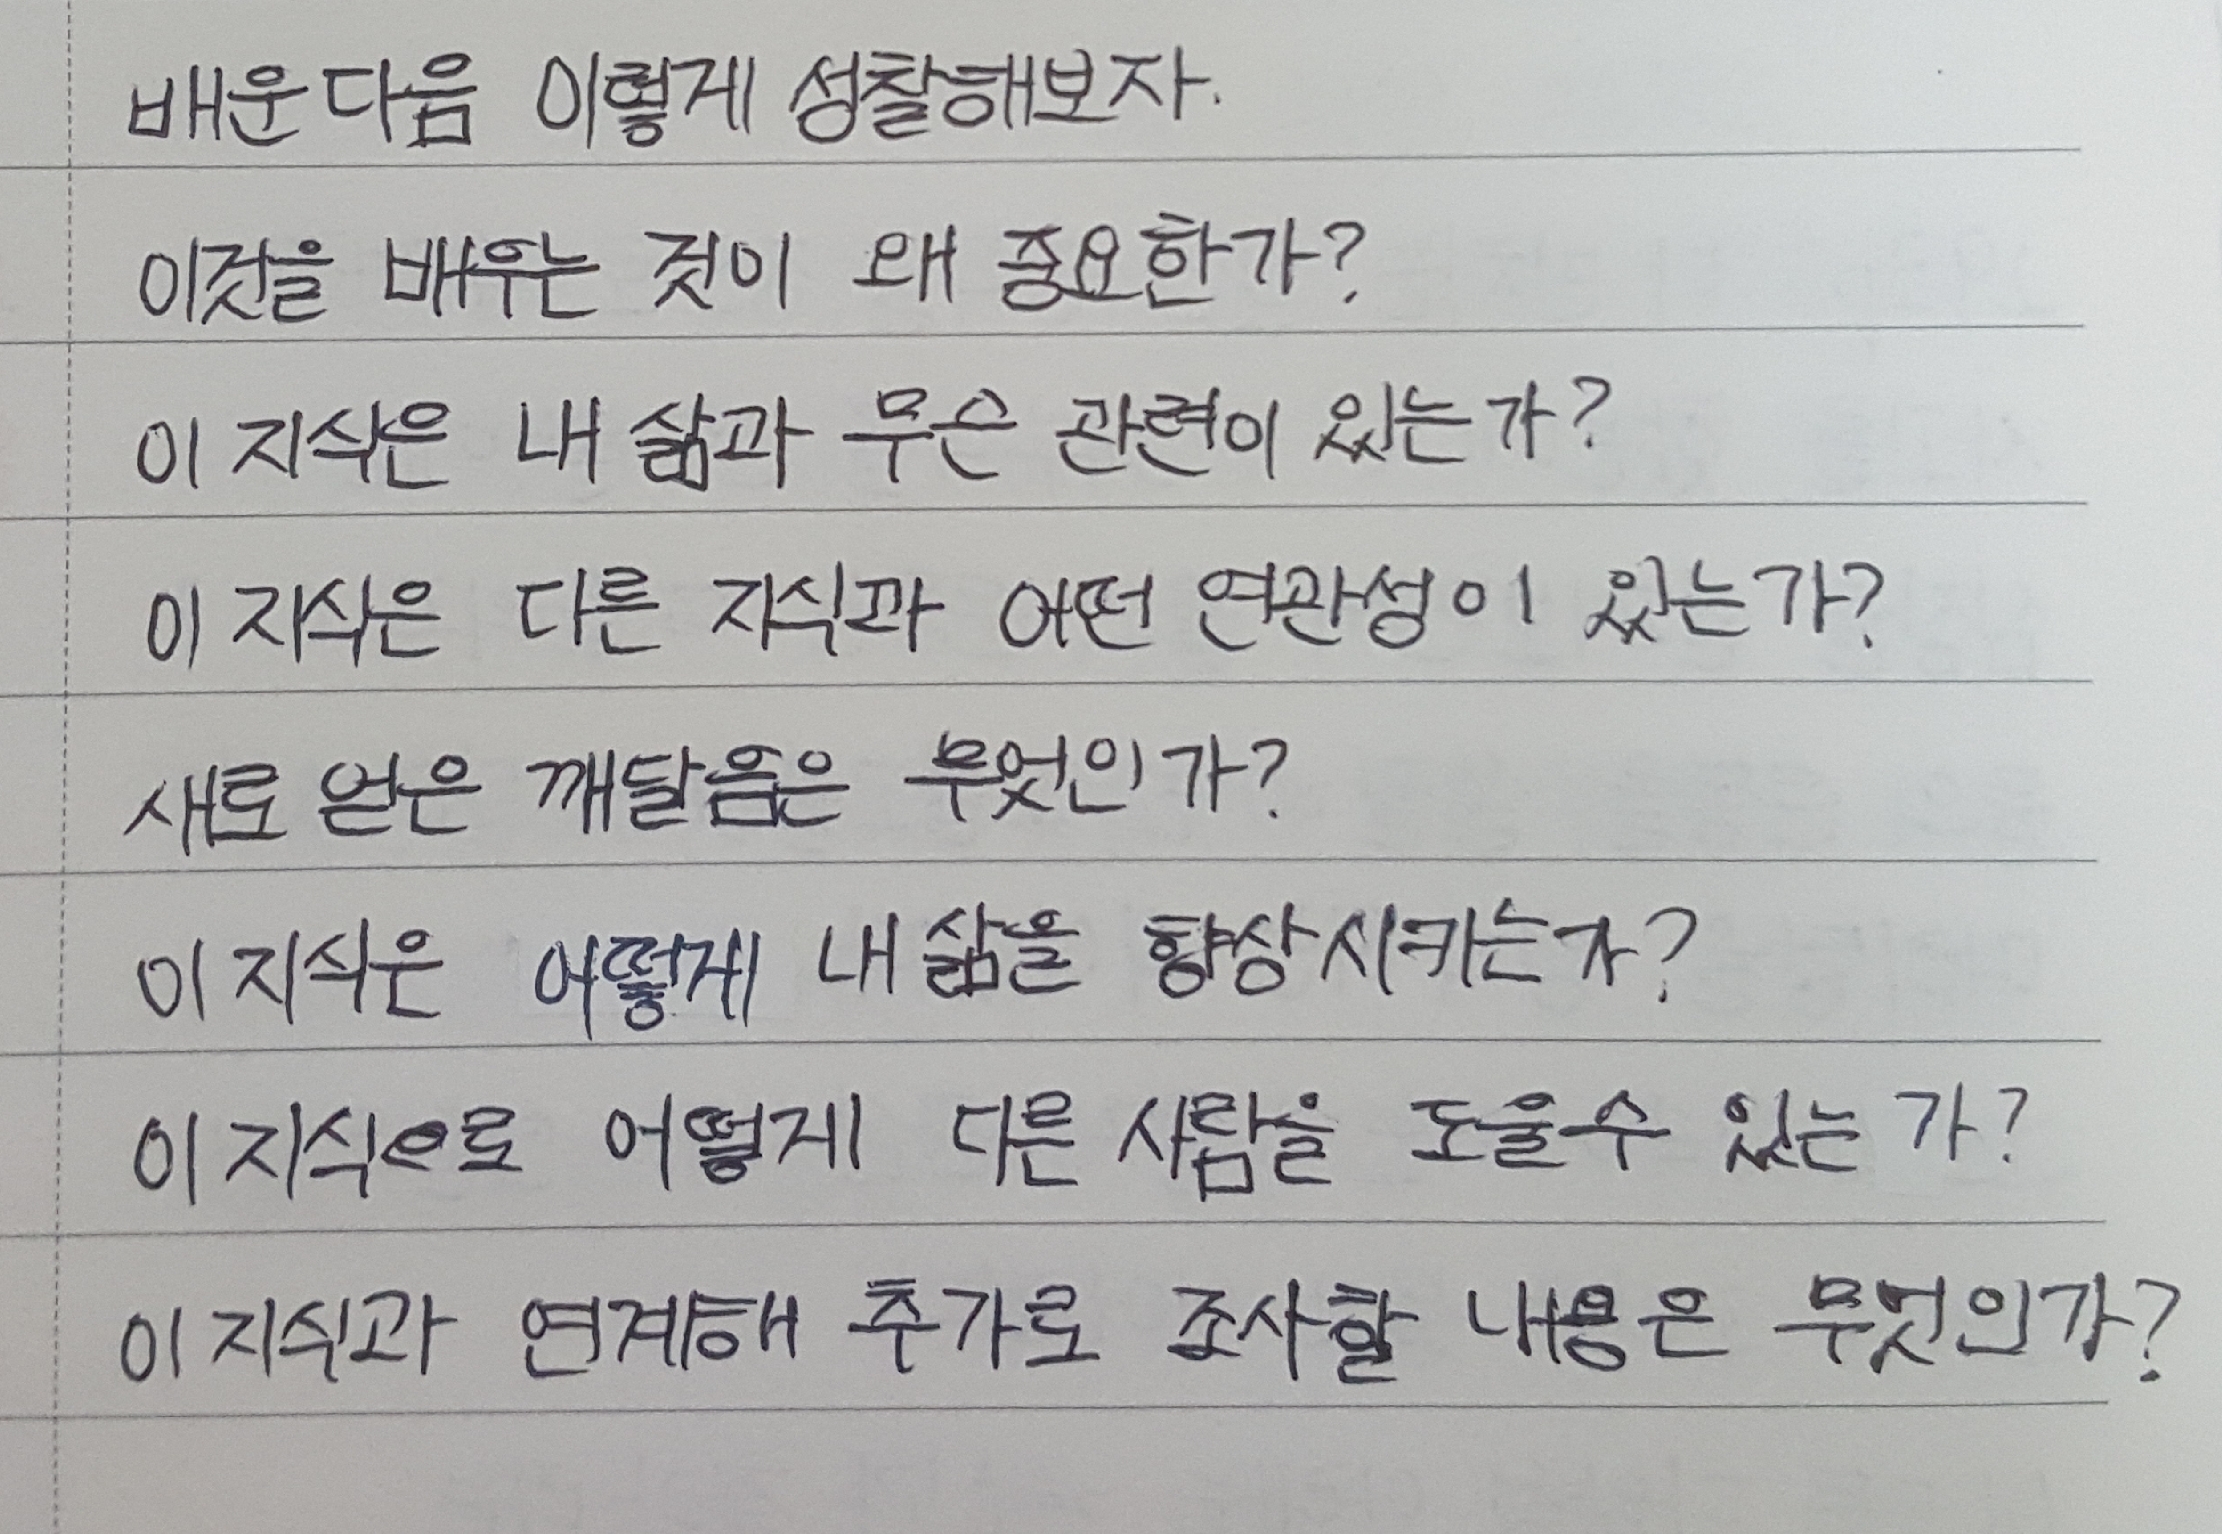 배운다음 이렇게 성찰해보자.
이것을 배우는 것이 왜 중요한가?
이 지식은 내 삶과 무슨 관련이 있는가?
이 지식은 다른 지식과 어떤 연관성이 있는가?
새로 얻은 깨달음은 무엇인가?
이 지식은 어떻게 내 삶을 향상시키는가?
이 지식으로 어떻게 다른 사람을 도울수 있는가?
이 지식과 연계해 추가로 조사할 내용은 무엇인가?